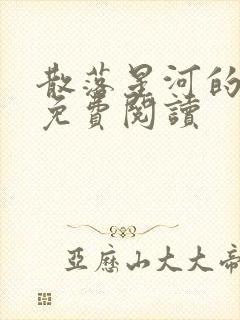 散落星河的
免費閱讀
亞歷山大大帝